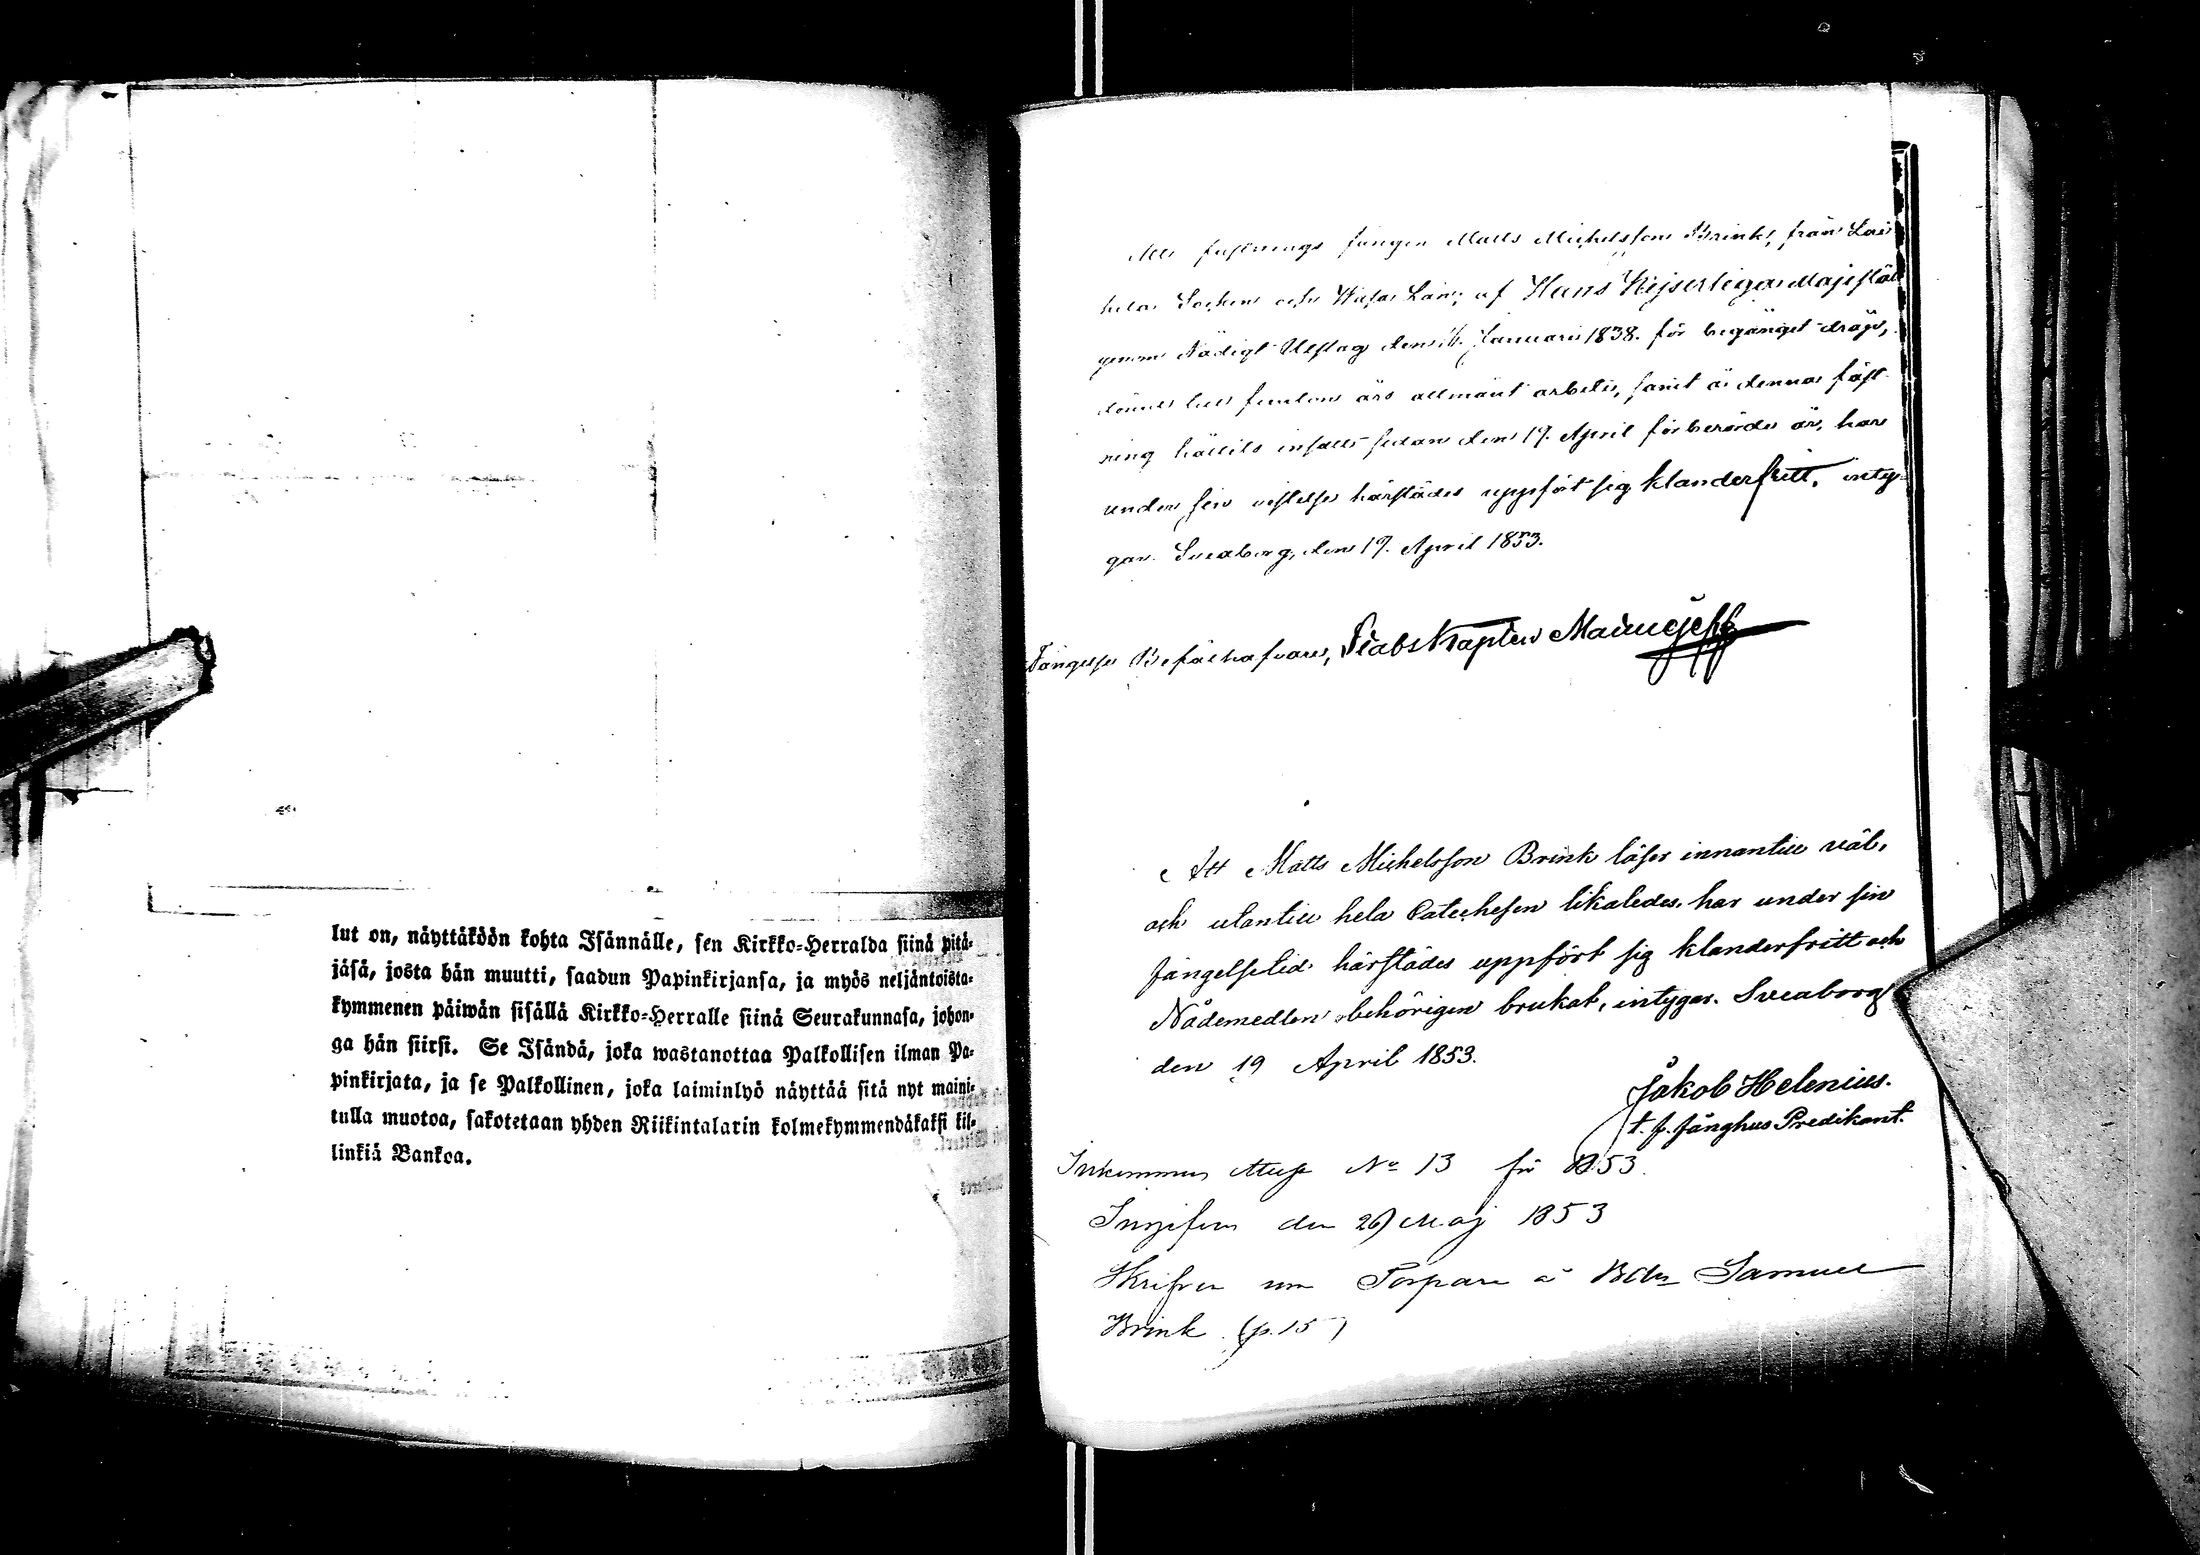 lut on, näyttäköön kohta Isännälle, sen Kirkko-Herralda siinä pitä-
jäsä, josta hän muutti, saadun Papinkirjansa, ja myös neljäntoista-
kymmenen päiwän sisällä Kirkko-Herralle siinä Seurakunnasa, johon-
ga hän siirsi. Se Isändä, joka wastanottaa Palkollisen ilman Pa-
pinkirjata, ja se Palkollinen, joka laiminlyö näyttää sitä nyt maini-
tulla muotoa, sakotetaan yhden Riikintalarin kolmekymmendäkaksi kil-
linkiä Bankoa.
Att fästnings fången Matts Michelsson Brink, från Lai
hela Socken och Wasa Län, af Hans Kejserliga Majestät
genom Nådigt Utslag den 16. Januari 1838. för begånget dråp,
dömd till femton års allmänt arbete, samt å denna fäst-
ning hållits insatt sedan den 19. April förberörde år, har
under sin vistelse härstädes uppfört sig klanderfritt, inty-
gar. Sveaborg, den 19. April 1853.
Fängelse Befälhafvare, Stabs Kapten
Att Matts Michelsson Brink läser innantill väl,
och utantill hela Catechesen likaledes, har under sin
fängelsetid härstädes uppfört sig klanderfritt och
Nådemedlen behörigen brukat, intygar. Sveaborg
den 19 April 1853.
Jakob Helenius.
t. f. fånghus Predikant.
Inkommen Attest No 13 för 1853.
Ingifven den 26 Maj 1853
Skrifven som Torpare å Samuel
Brink (p. 15)